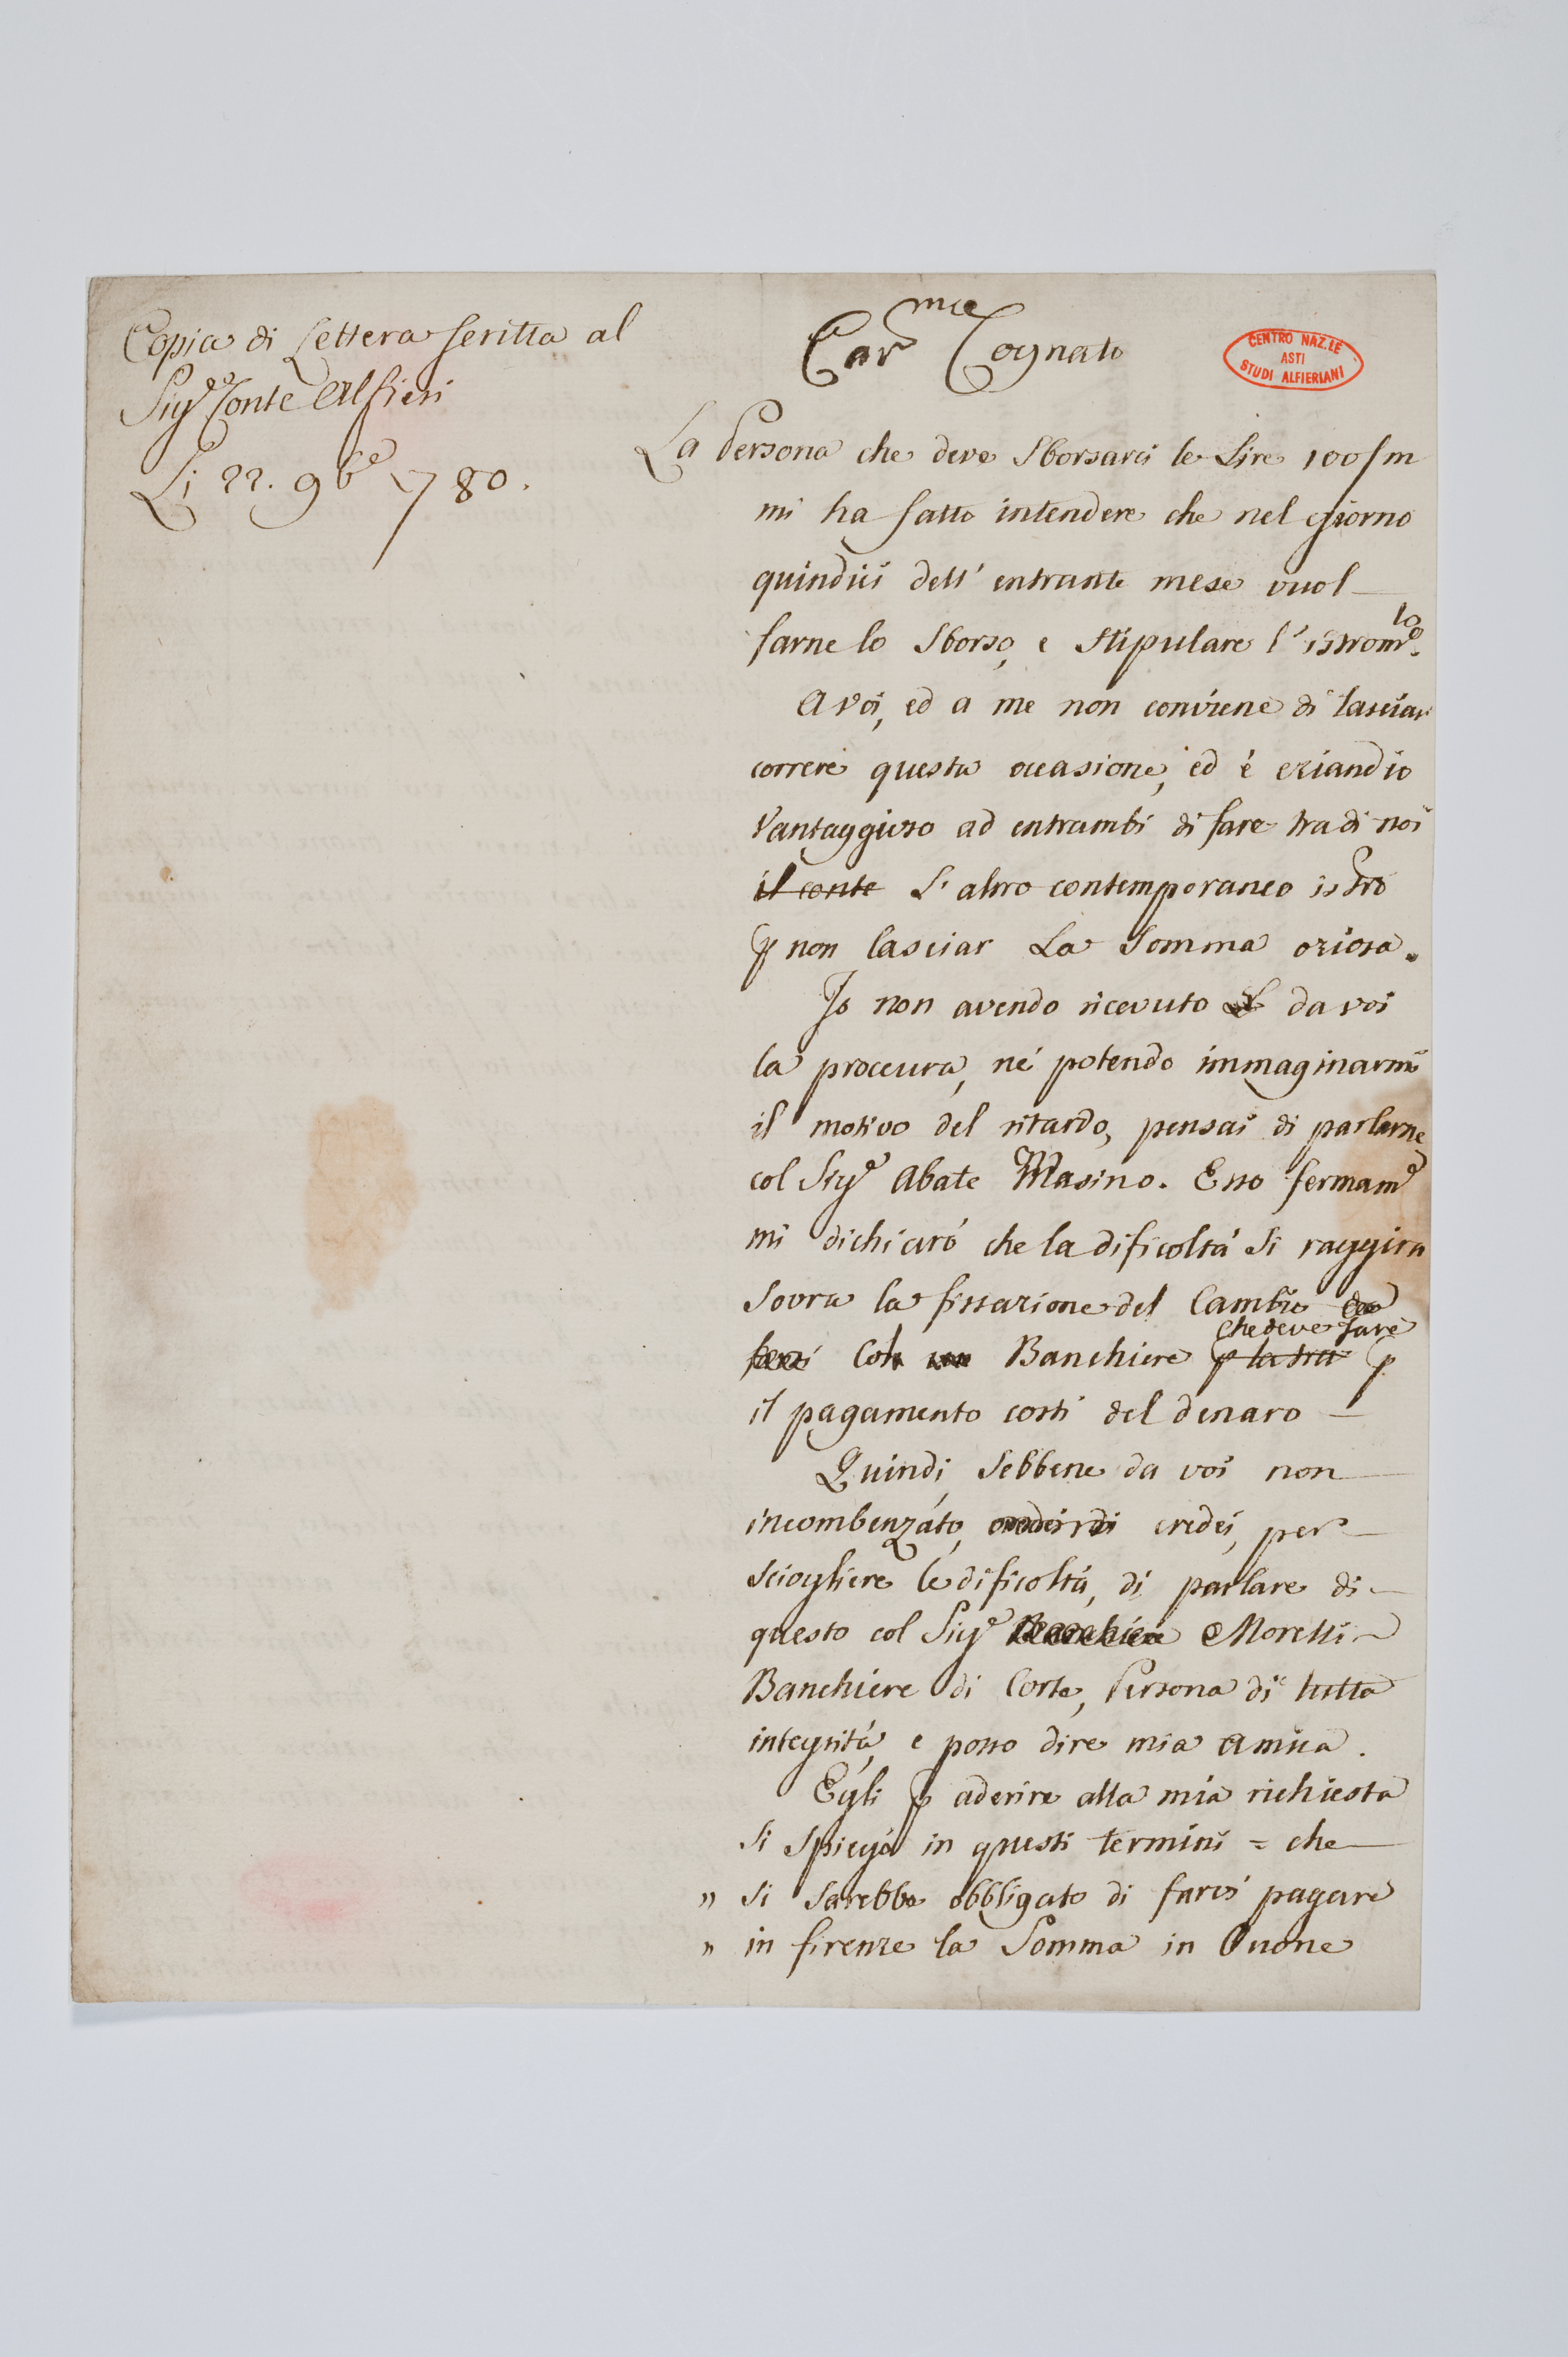 Copia di Lettera scritta al
Sig.e Conte Alfieri
Li 22. 9b.e 1780.
Car.mce Cognato
CENTRO NAZ.LE
ASTI
STUDI ALFIERIANI
La Persona che deve Sborsarci le Lire 100/m
mi ha fatto intendere che nel giorno
quindici dell' entrante mese vuol
farne lo Sborso, e Stipulare l' istrom.to
A voi, ed a me non conviene di lasciar
correre questa occasione, ed è eziandio
Vantaggioso ad entrambi di fare tra di noi
il conte L' altro contemporaneo istro
p non lasciar La Somma oziosa.
Io non avendo ricevuto da voi
la proccura, né potendo immaginarmi
il motivo del ritardo, pensai di parlarne
col Sig.e Abate Masino. Esso fermam.e
mi dichiaró che la dificoltá Si raggira
Sovra la fissazione del Cambio
che deve fare
Col Banchiere p la tra p
il pagamento costì del denaro
Quindi, Sebbene da voi non
incombenzáto, credei, per
sciogliere le dificoltá, di parlare di
questo col Sig.e Banchiere Moretti
Banchiere di Corte, Persona di tutta
integritá, e posso dire mia amica.
Egli p aderire alla mia richiesta
Si Spiegó in questi termini = che
" Si Sarebbe obbligato di farci pagare
" in firenze la Somma in buone